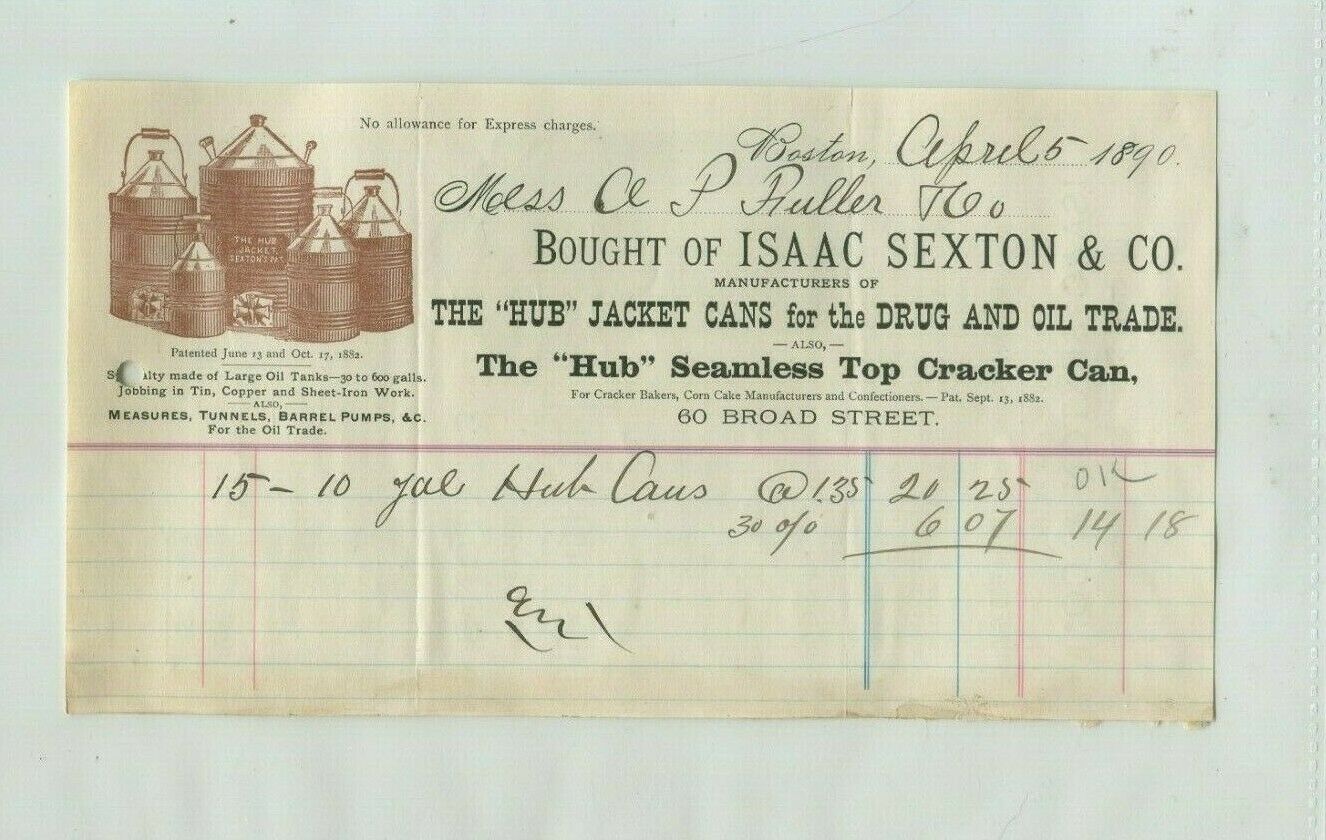 No allowance for Express charges.
Boston, April 5 1890.
Mess A P Fuller & Co
BOUGHT OF ISAAC SEXTON & CO.
MANUFACTURERS OF
THE "HUB" JACKET CANS for the DRUG AND OIL TRADE.
— ALSO, —
The "Hub" Seamless Top Cracker Can,
For Cracker Bakers, Corn Cake Manufacturers and Confectioners. — Pat. Sept. 13, 1882.
60 BROAD STREET.
THE HUB
JACKET
SEXTON'S PAT.
Patented June 13 and Oct. 17, 1882.
S alty made of Large Oil Tanks—30 to 600 galls.
Jobbing in Tin, Copper and Sheet-Iron Work.
— ALSO, —
MEASURES, TUNNELS, BARREL PUMPS, &C.
For the Oil Trade.
15 – 10 gal Hub Cans @ 1.35 20 25 OK
30 o/o 6 07 14 18